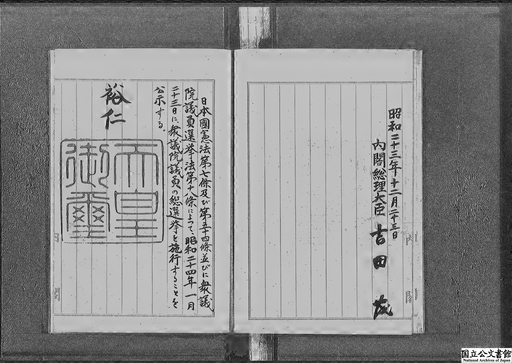 日本國憲法第七條及び第五十四條並びに衆議
院議員選挙法第十八條によって、昭和二十四年一月
二十三日に、衆議院議員の総選挙を施行することを
公示する。
裕仁
天皇
御璽
昭和二十三年十二月二十三日
内閣総理大臣 吉田茂
国立公文書館
National Archives of Japan